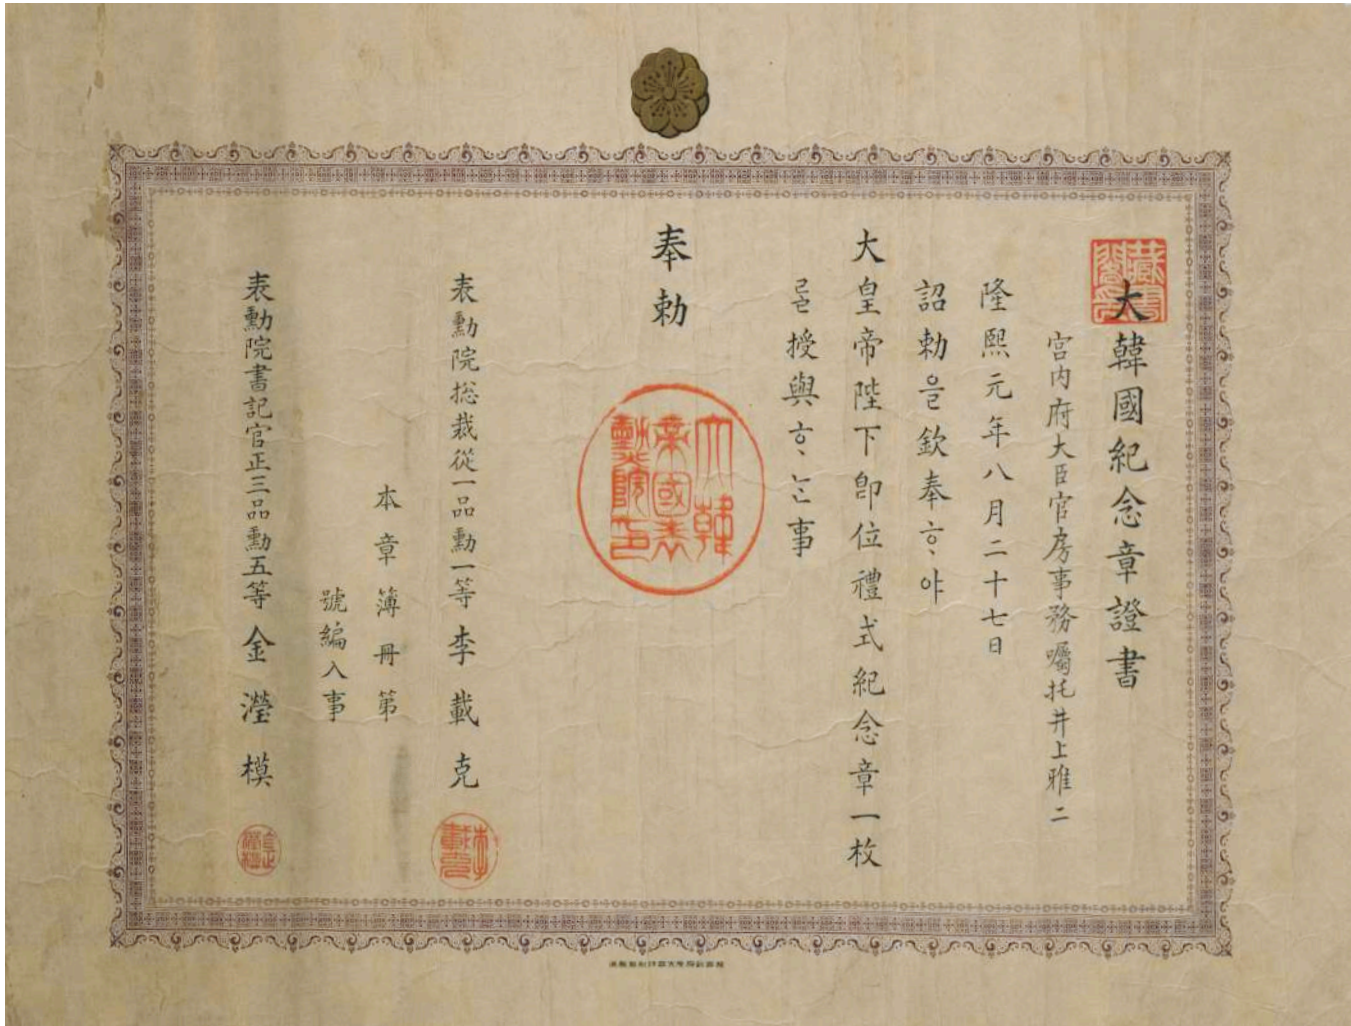 大韓國紀念章證書
宮内府大臣官房事務囑托井上雅二
隆熙元年八月二十七日
詔勅을欽奉ᄒᆞ야
大皇帝陛下卽位禮式紀念章一枚
를授與ᄒᆞᄂᆞᆫ事
奉勅
大韓帝國表勳院印
表勳院総裁從一品勳一等李載克
李載克
本章簿冊第
號編入事
表勳院書記官正三品勳五等金瀅模